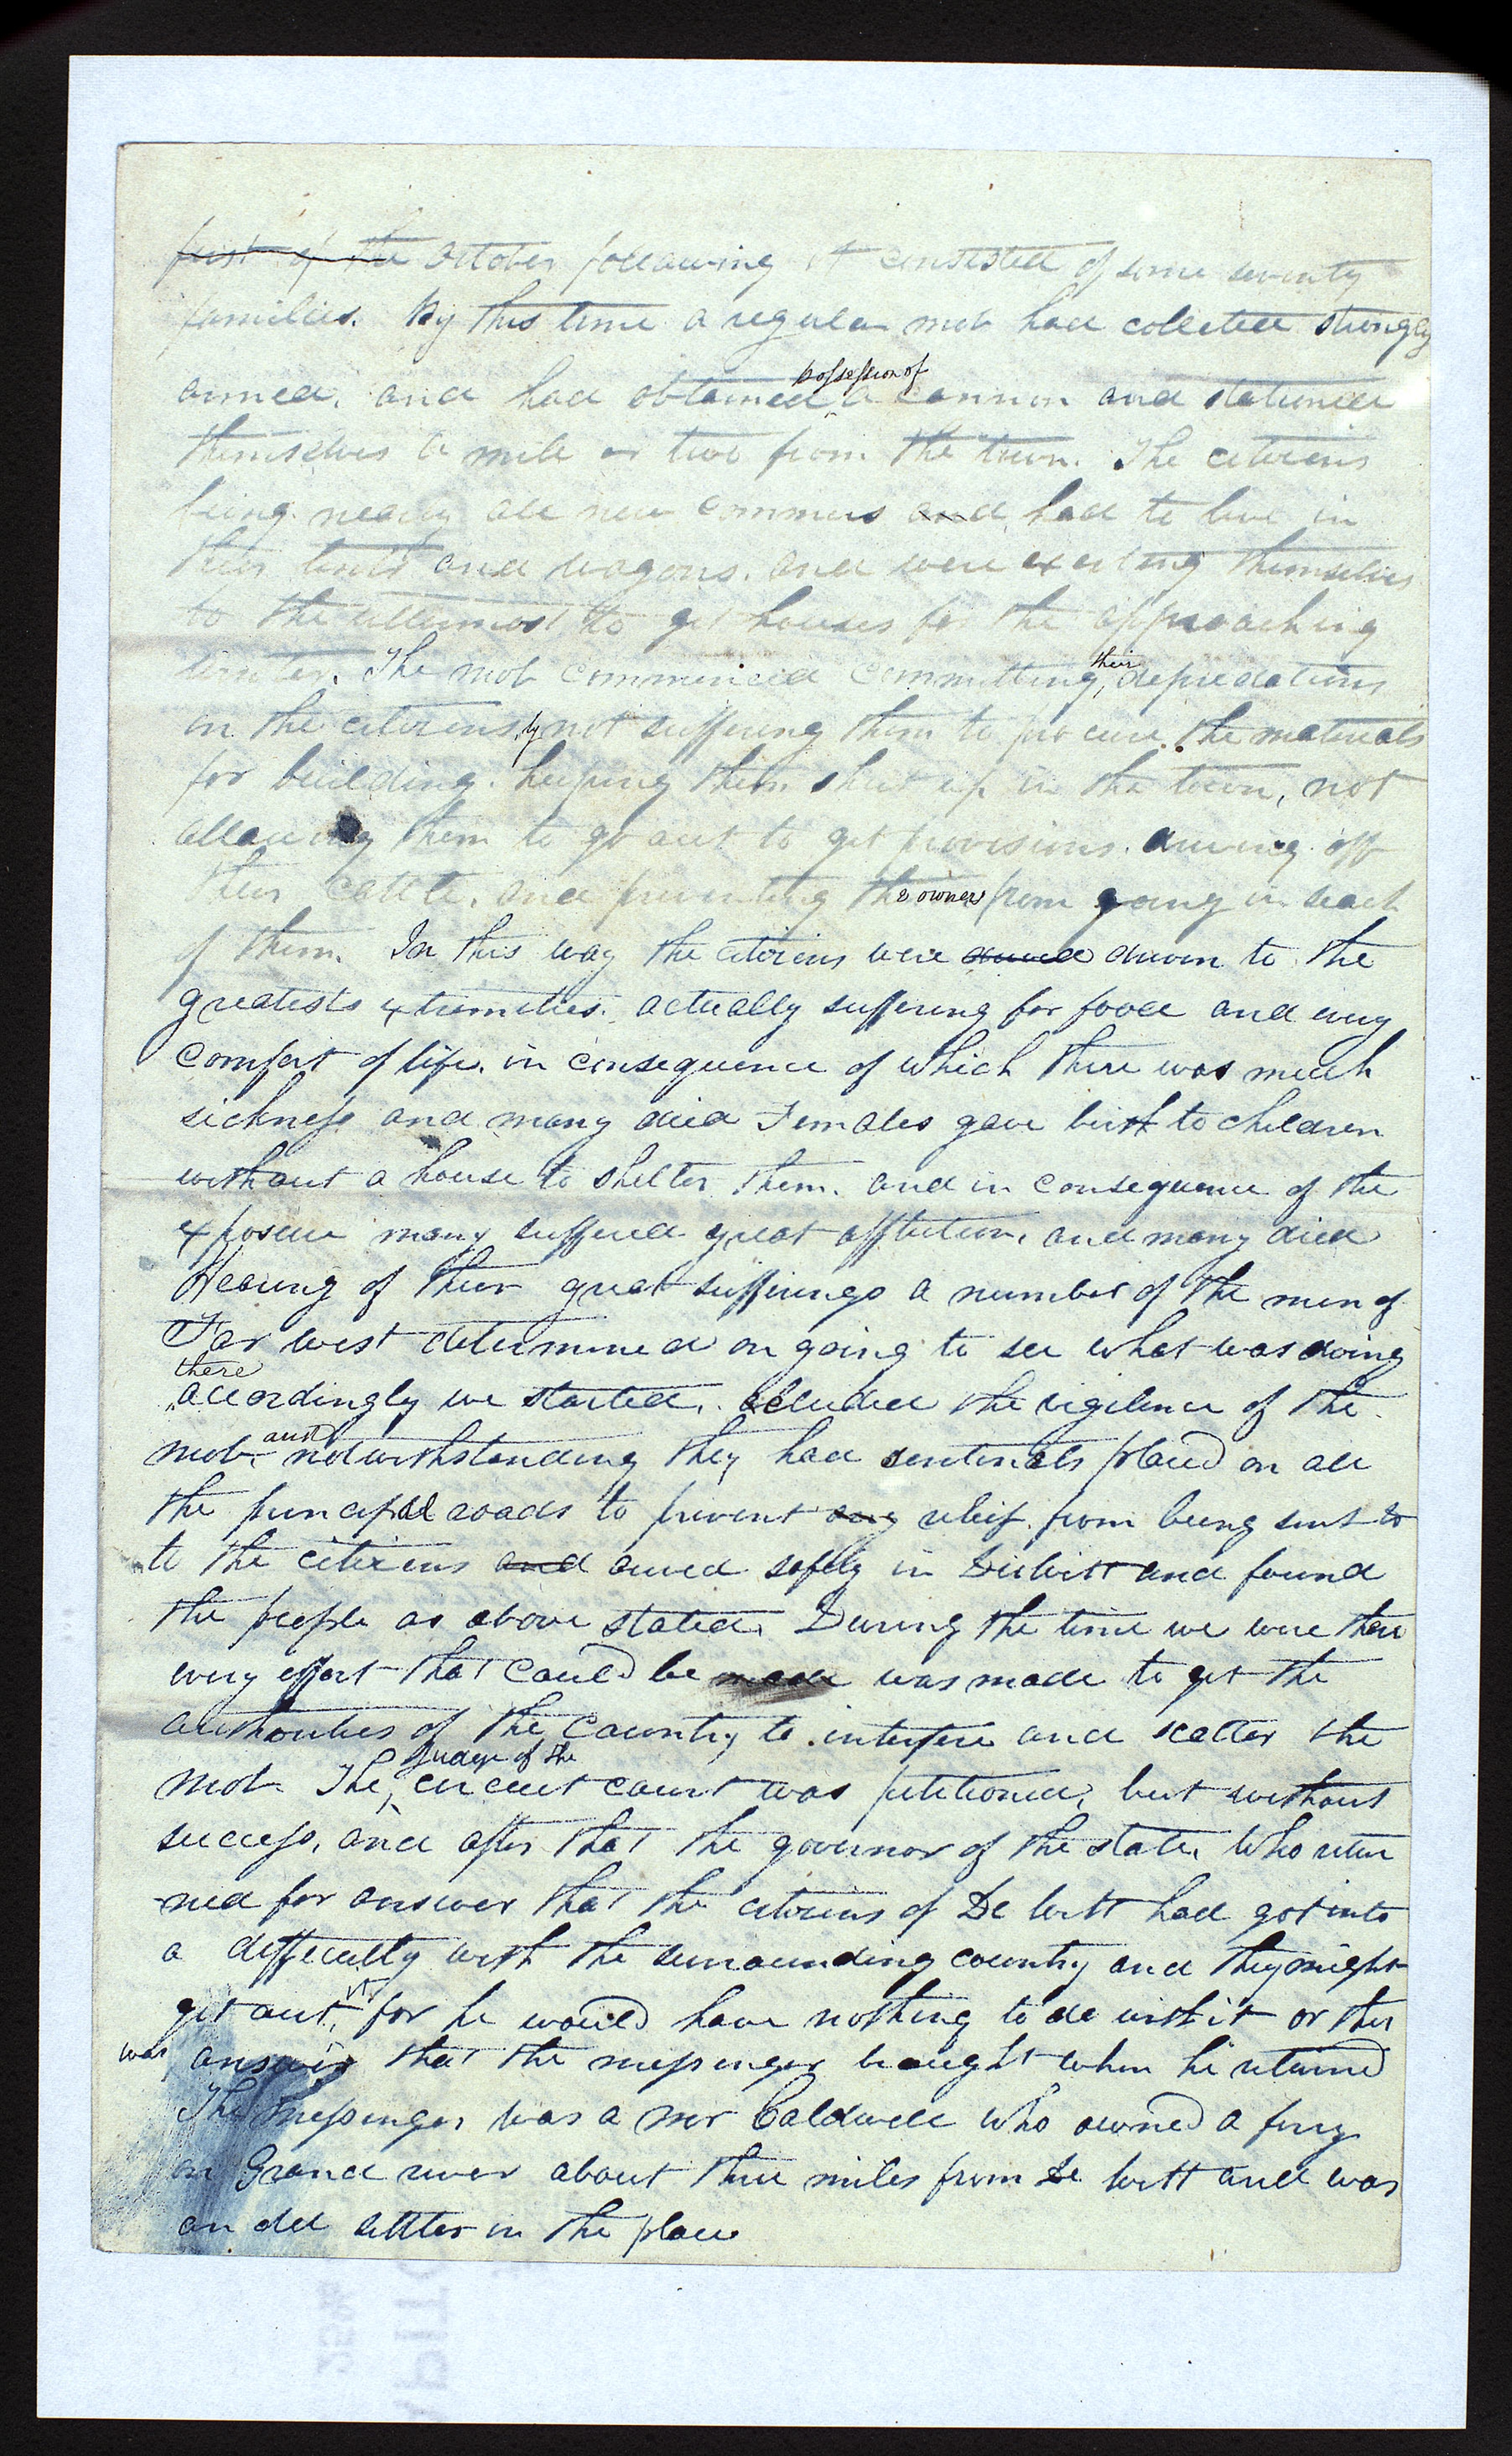 first of the October following it consisted of some seventy
families. By this time a regular mob had collected strongly
armed, and had obtained possession of a cannon and stationed
themselves a mile or two from the town. The citizens
being nearly all new commers and had to live in
their tents and wagons. and were exerting themselves
to the uttermost to get houses for the approaching
winter. The mob commenced committing their depredations
on the citizens by not suffering them to procure the materials
for building. keeping them shut up in the town, not
allowing them to go out to get provisions. driving off
their cattle, and preventing the owners from going in seach
of them. In this way the citizens were drived driven to the
greatests extremities. actually suffering for food and every
comfort of life. in consequence of which there was much
sickness and many died Females gave birth to children
without a house to shelter them. and in consequence of the
exposure many suffered great affliction, and many died
Hearing of their great sufferings a number of the men of
Far west determined on going to see what was doing
there accordingly we started. eluded the vigilence of the
mob. and notwithstanding they had sentinels placed on all
the principal roads to prevent any relief from being sent to
to the citizens and arived safely in Dewitt and found
the people as above stated. During the time we were there
every effort that could be made was made to get the
authorities of the country to interfere and scatter the
mob. The Judge of the circuit court was petitioned, but without
success, and after that the governor of the state, who retur
ned for answer that the citizens of De Witt had got into
a difficulty with the surrounding country and they might
get out of it, for he would have nothing to do with it or this
was answer that the messenger brought when he returned
The messenger was a mr Caldwell who owned a ferry
on Grand river about three miles from De witt and was
an old settler in the place